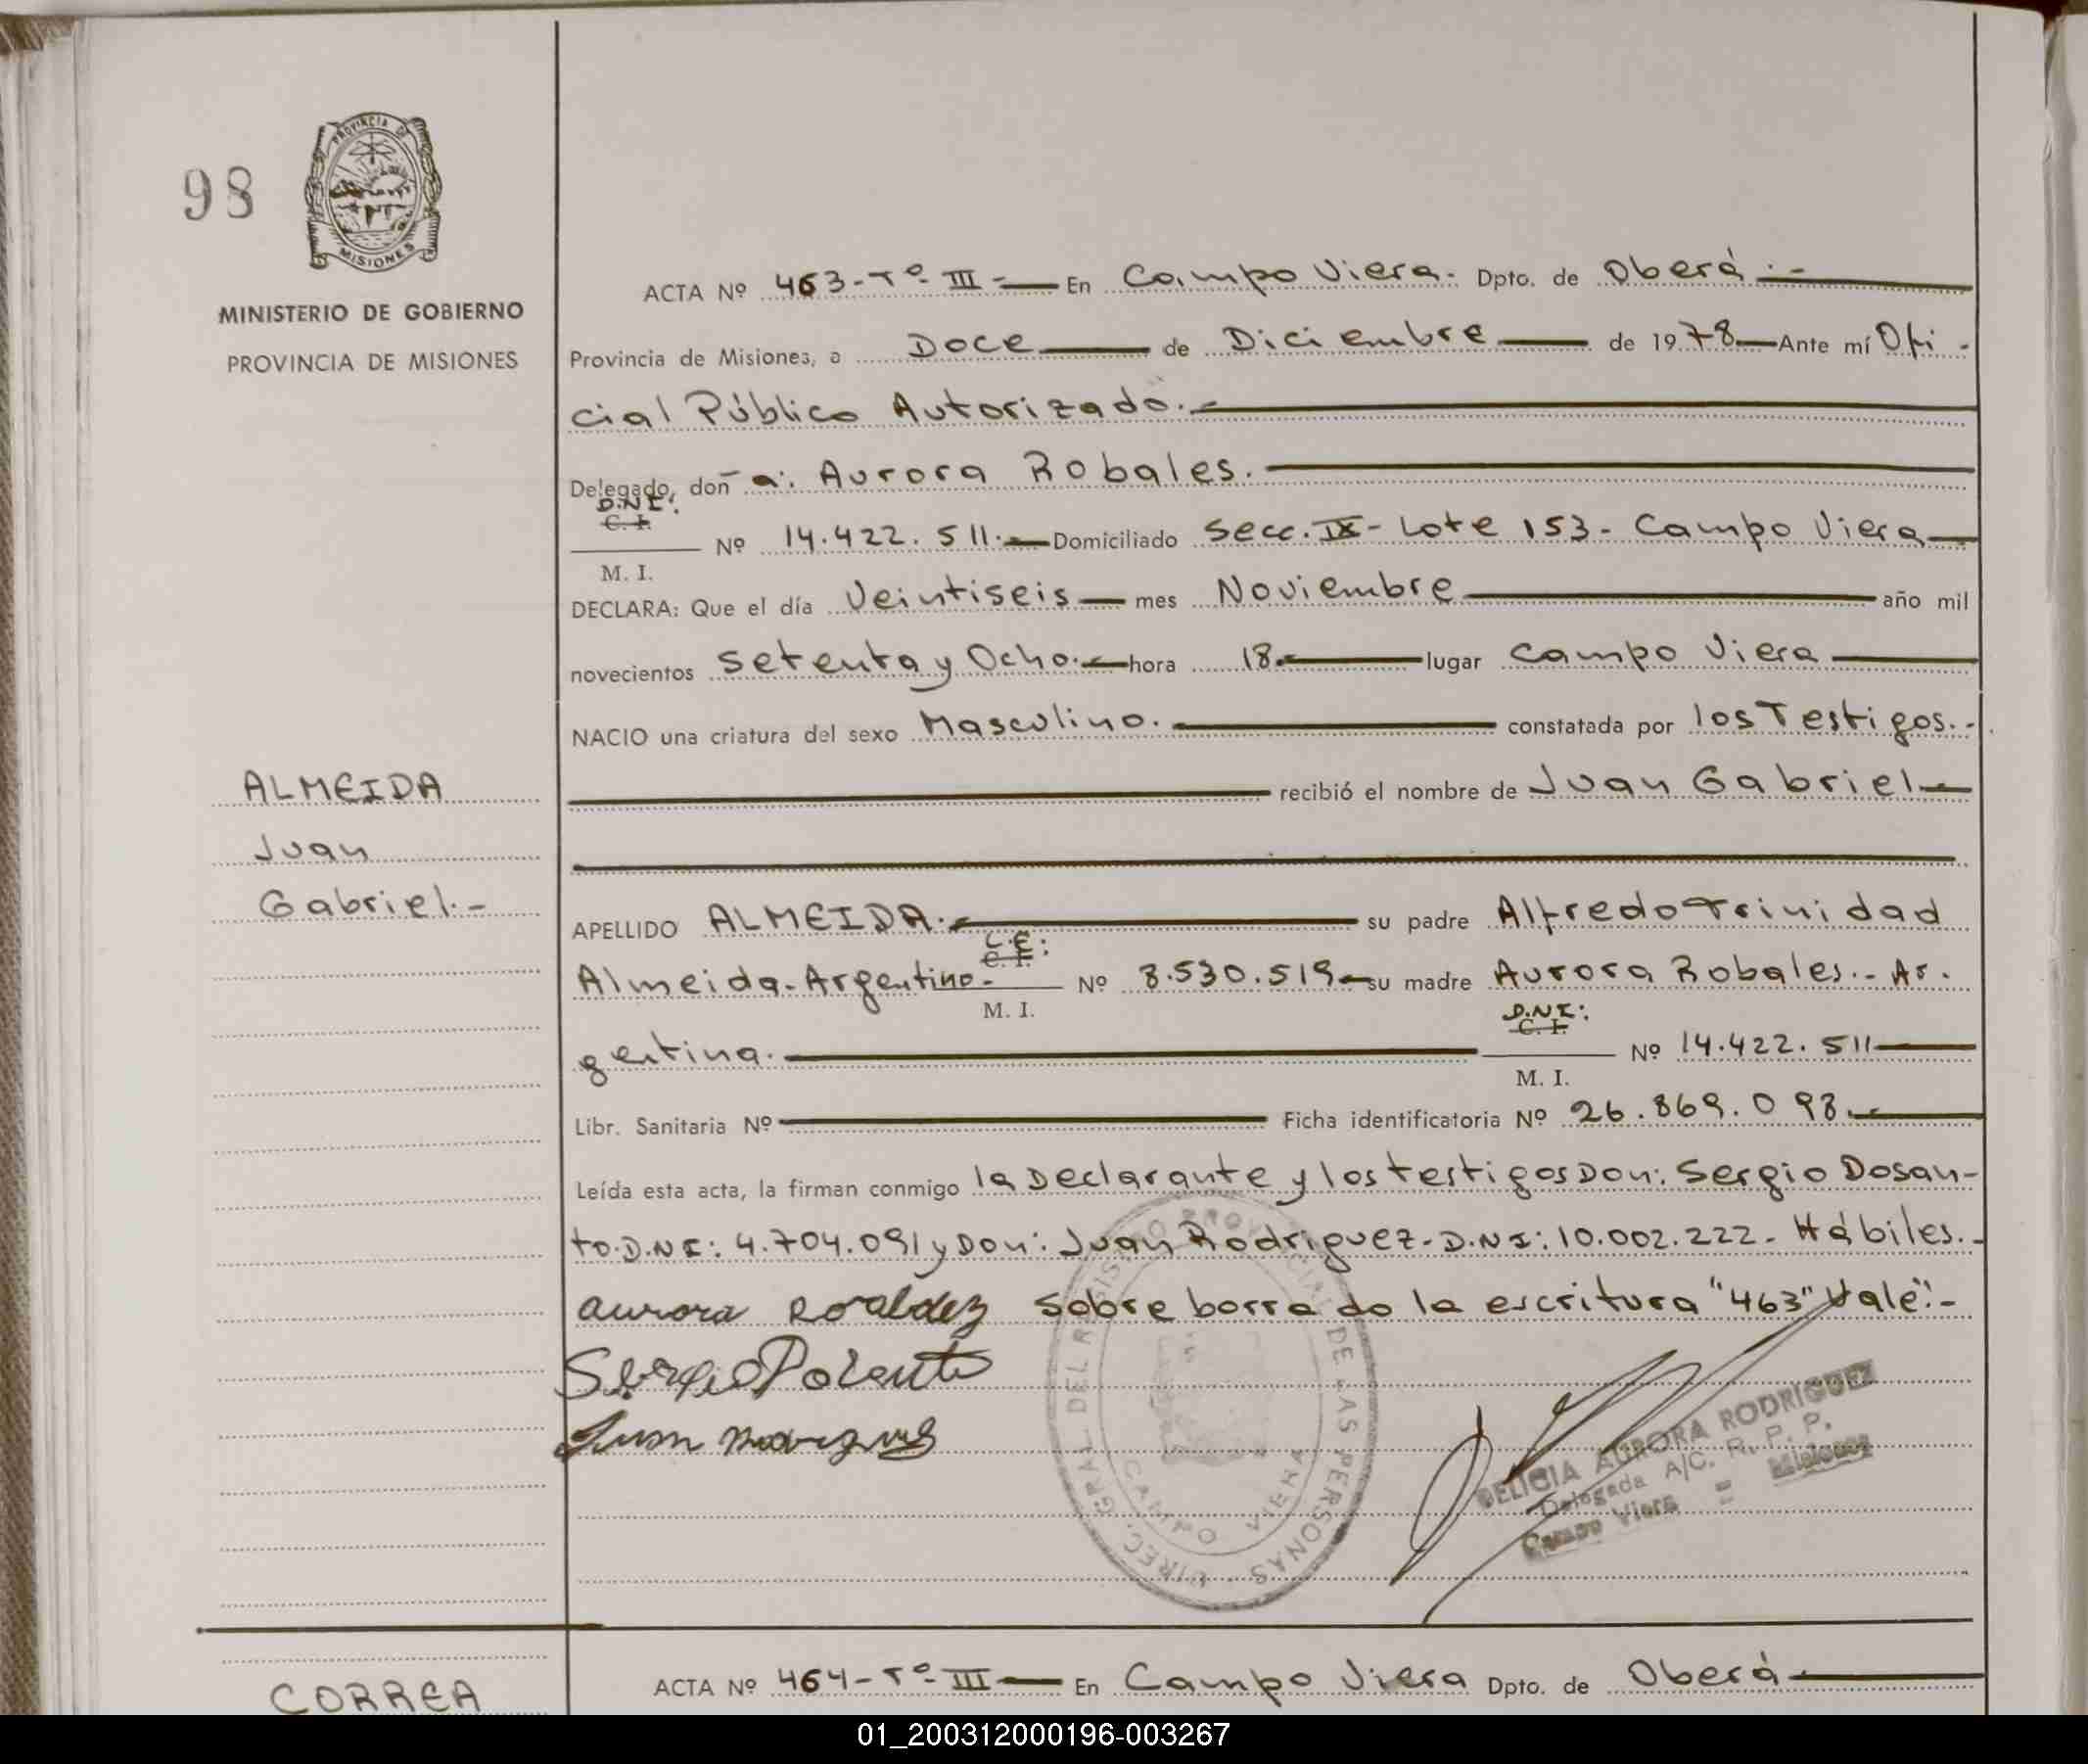 98
PROVINCIA DE
MISIONES
MINISTERIO DE GOBIERNO
PROVINCIA DE MISIONES
ACTA Nº 463-Tº-III- En Campo Viera. Dpto. de Oberá.-
Provincia de Misiones, a Doce de Diciembre de 1978 Ante mí Ofi-
cial Público Autorizado.-
Delegado, don a: Aurora Robales.
D.N.I:
C. I.
Nº 14.422.511.- Domiciliado Secc. IX- Lote 153- Campo Viera
M. I.
DECLARA: Que el día Veintiseis mes Noviembre año mil
novecientos Setenta y Ocho.- hora 18.- lugar Campo Viera
NACIO una criatura del sexo Masculino. constatada por los Testigos.-
ALMEIDA
recibió el nombre de Juan Gabriel
Juan
Gabriel.-
APELLIDO ALMEIDA.- su padre Alfredo Trinidad
L.E:
C. I.
Almeida-Argentino- Nº 8.530.519 su madre Aurora Robales.- Ar-
M. I.
D.N.I:
C. I.
gentina. Nº 14.422.511
M. I.
Libr. Sanitaria Nº Ficha identificatoria Nº 26.869.098.-
Leída esta acta, la firman conmigo la Declarante y los testigos Don: Sergio Dosan-
to.D.N.I: 4.704.091 y Don: Juan Rodriguez-D.N.I: 10.002.222- Hábiles.-
aurora Sobre borrado la escritura "463" Vale".-
Sergio
Juan
DIREC. GRAL. DEL REGISTRO PROVINCIAL DE LAS PERSONAS
CAMPO VIERA
DELICIA AURORA RODRIGUEZ
Delegada A/C. R. P. P.
Campo Viera = Misiones
CORREA
ACTA Nº 464-Tº-III En Campo Viera Dpto. de Oberá
01_200312000196-003267